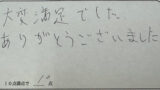 大変満足でした.
ありがとうございました
10点満点で 10 点